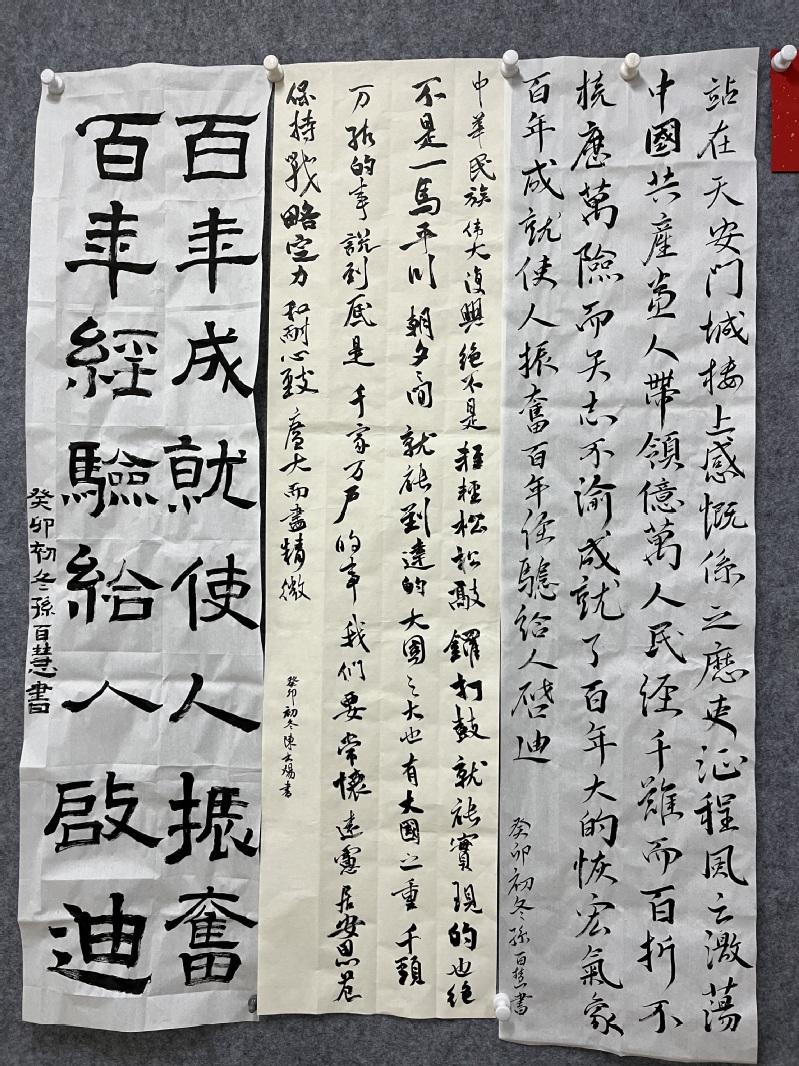 站在天安门城楼上感慨係之歷史征程風云激蕩
中國共產黨人帶領億萬人民经千難而百折不
撓歷萬險而矢志不渝成就了百年大的恢宏氣象
百年成就使人振奮百年经驗给人啓迪
癸卯初冬孫百慧書
中華民族伟大復興绝不是轻轻松松敲鑼打鼓就能實現的也绝
不是一馬平川朝夕间就能到達的大國之大也有大國之重千頭
万绪的事說到底是千家万户的事我們要常懷遠慮居安思危
保持戰略定力和耐心致廣大而盡精微
癸卯初冬陳書
百年成就使人振奮
百年經驗給人啟迪
癸卯初冬孫百慧書